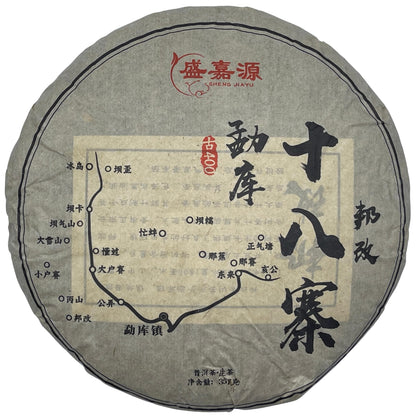 盛嘉源
SHENG JIAYU
十八寨
勐库
古400
邦改
冰岛
坝歪
坝卡
坝糯
坝气山
忙蚌
大雪山
正气塘
懂过
那蕉
那赛
小户赛
大户赛
东来
亥公
丙山
公弄
邦改
勐库镇
普洱茶·生茶
净含量: